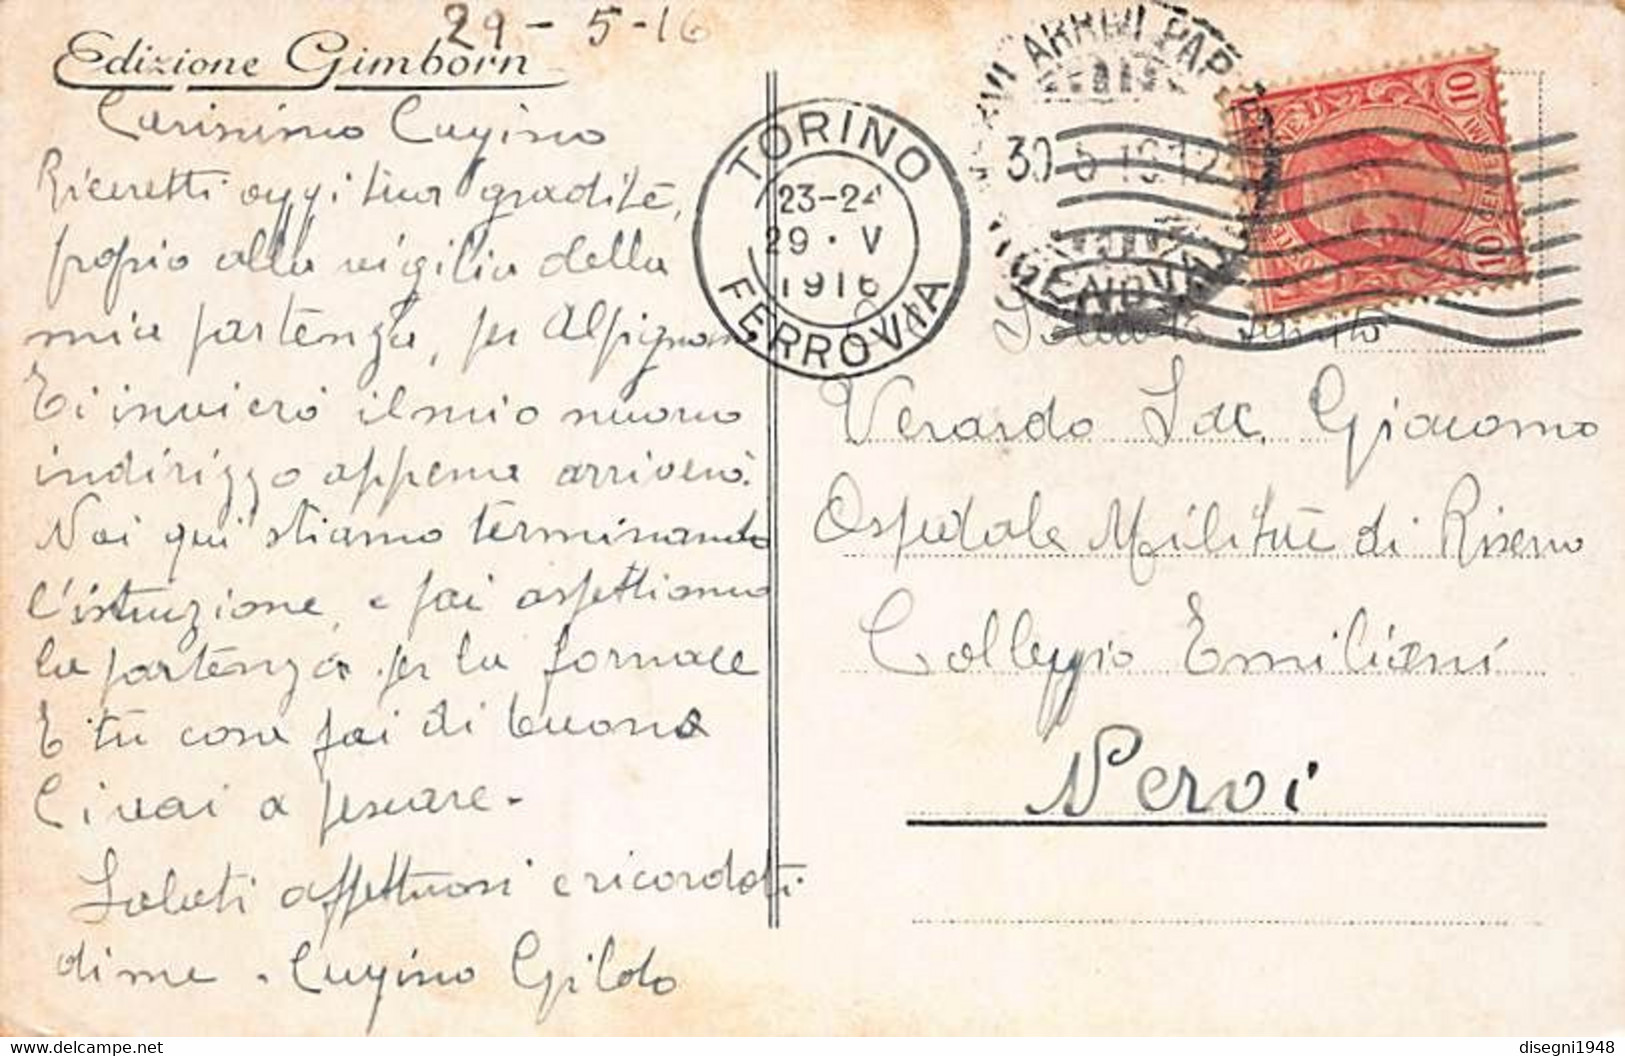 29-5-16
Edizione Gimborn
Carissimo Cugino
Ricevetti oggi tua gradite,
proprio alla vigilia della
mia partenza, per Alpignano
E ti invierò il mio nuovo
indirizzo appena arriverò.
Noi qui stiamo terminando
l'istruzione, e poi aspettiamo
la partenza per la fornace
E tu cosa fai di buono
Ci vai a pescare -
Saluti affettuosi e ricordati
di me - Cugino Gildo
TORINO
23-24
29 · V
1916
FERROVIA
ARRIVI
30 5 19 12
GENOVA
10
10
Verardo Sac. Giacomo
Ospedale Militare di Riserva
Colleggio Emiliani
Nervi
disegni1948